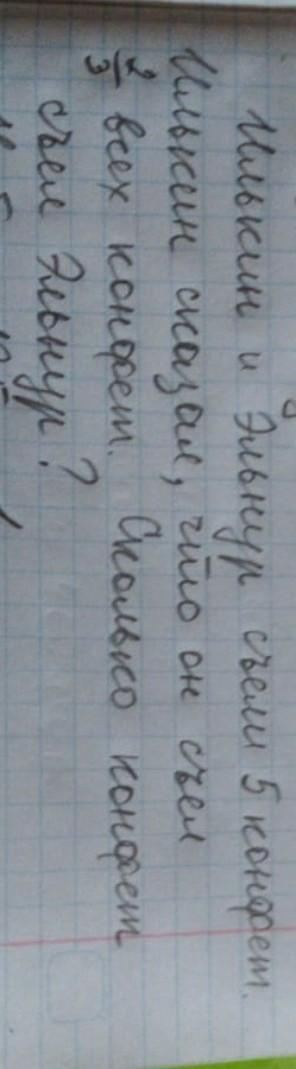 Илькин и Эльнур съели 5 конфет.
Илькин сказал, что он съел
2/3 всех конфет. Сколько конфет
съел Эльнур?